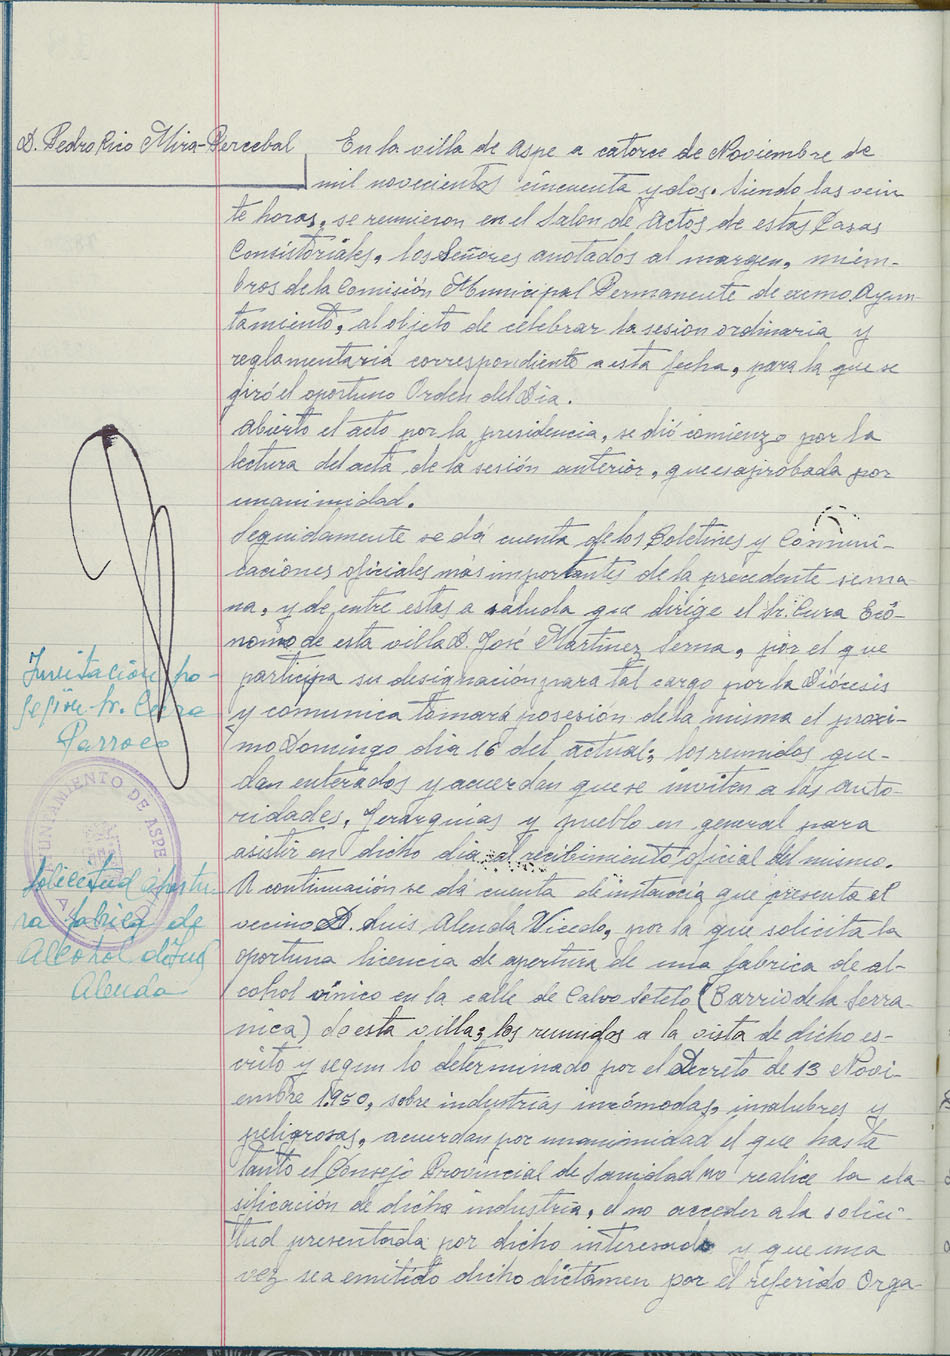 D. Pedro Rico Mira-Percebal
En la villa de Aspe a catorce de Noviembre de
mil novecientos cincuenta y dos. Siendo las vein
te horas, se reunieron en el Salon de Actos de estas Casas
Consistoriales, los Señores anotados al margen, miem-
bros de la Comisión Municipal Permanente de exmo. Ayun-
tamiento, al objeto de celebrar la sesion ordinaria y
reglamentaria correspondiente a esta fecha, para la que se
giró el oportuno Orden del Dia.
Abierto el acto por la presidencia, se dió comienzo por la
lectura del acta de la sesión anterior, que es aprobada por
unanimidad.
Seguidamente se dá cuenta de los Boletines y Comuni-
caciones oficiales más importantes de la precedente sema
na, y de entre estas a saluda que dirige el Sr. Cura Ecó-
nomo de esta villa D. José Martinez Serna, por el que
participa su designación para tal cargo por la Diócesis
y comunica tomará posesión de la misma el proxi-
mo Domingo dia 16 del actual; los reunidos que-
dan enterados y acuerdan que se inviten a las auto-
ridades, Jerarquias y pueblo en general para
asistir en dicho dia al recibimiento oficial del mismo.
A continuación se dá cuenta de instancia que presenta el
vecino D. Luis Alenda Vicedo, por la que solicita la
oportuna licencia de apertura de una fabrica de al-
cohol vínico en la calle de Calvo Sotelo (Barrio de la Serra-
nica) de esta villa; los reunidos a la vista de dicho es-
crito y segun lo determinado por el Decreto de 13 Novi-
embre 1.950, sobre industrias incómodas, insalubres y
peligrosas, acuerdan por unanimidad el que hasta
tanto el Consejo Provincial de Sanidad no realice la cla-
sificación de dicha industria, el no acceder a la solici-
tud presentada por dicho interesado y que una
vez sea emitido dicho dictámen por el referido Orga-
Invitación po-
sesión Sr. Cura
Parroco
AYUNTAMIENTO DE ASPE
Solicitud apertu-
ra fabrica de
Alcohol de
Alenda